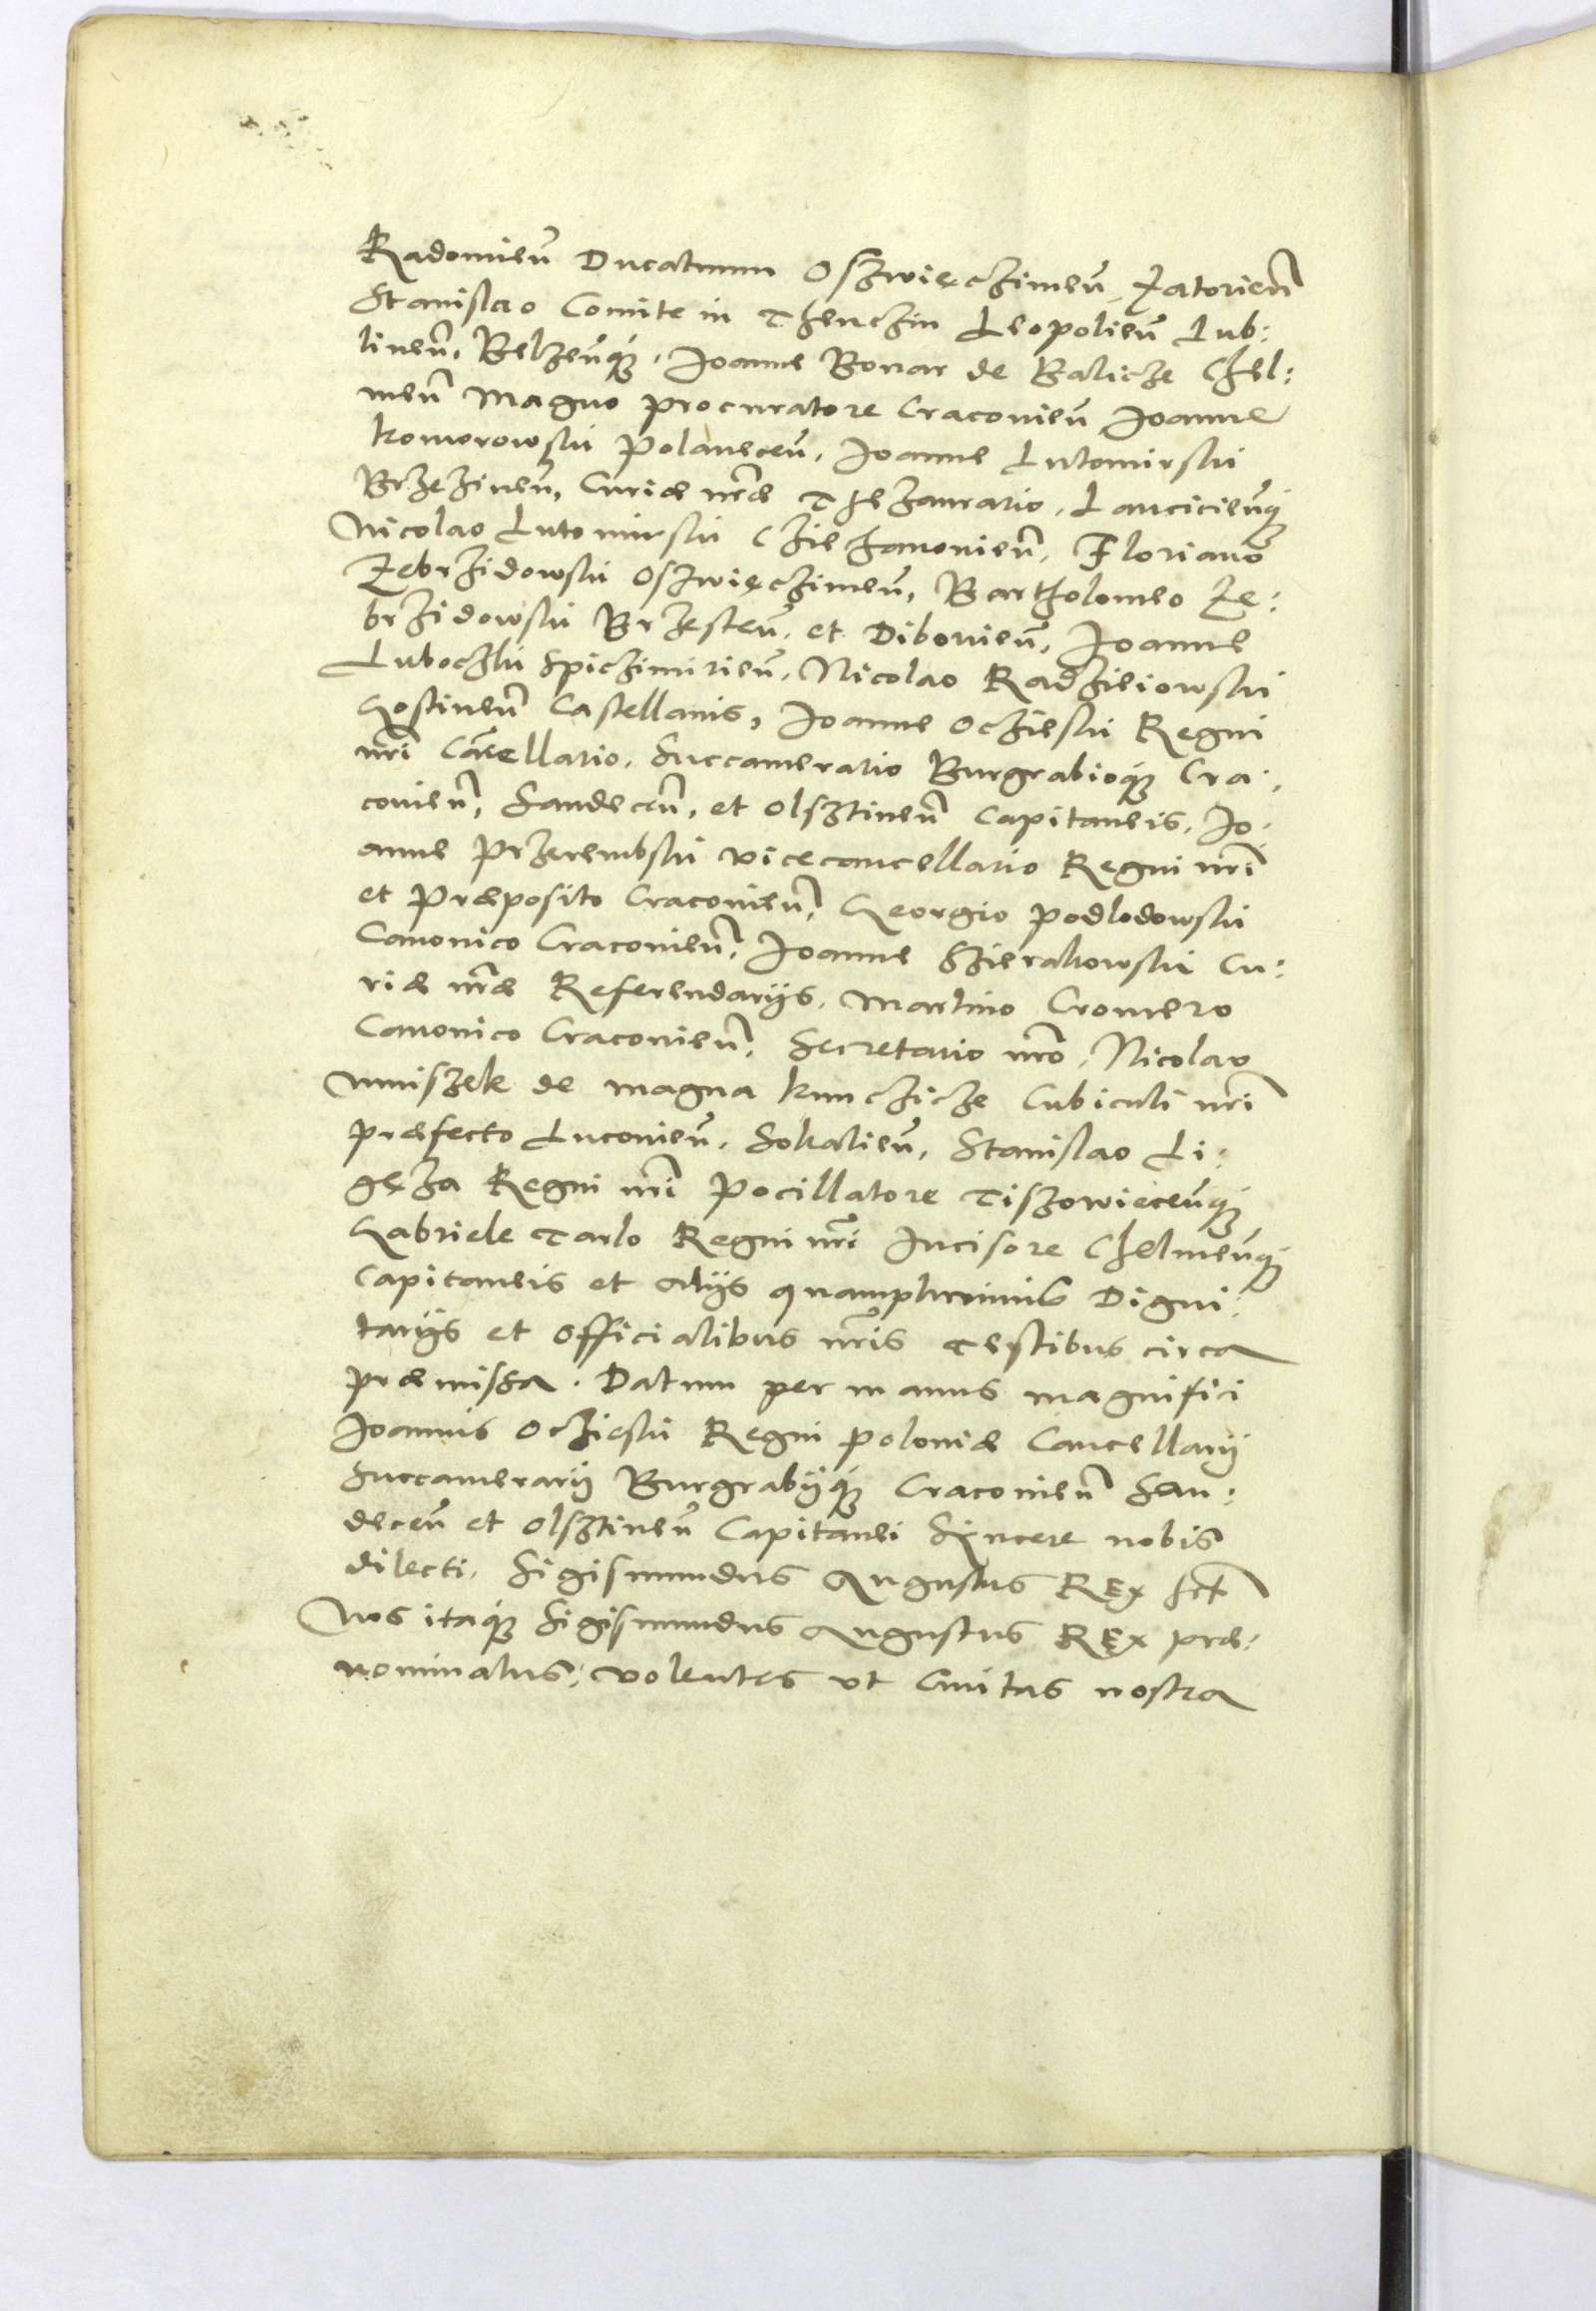 Radomień Ducatuum Oszwięczimeñ, Zatorień
Stanislao Comite in Thenczin Leopolień Lub:
lineñ, Belzeñq́ꝫ, Joanne Bonar de Balicze Chel:
meñ Magno procuratore Cracovień Joanne
komorowski Polaneceñ, Joanne Lutomirski
Brzezineñ, Curiæ nr̃æ Thezaurario, Lancicieñq́ꝫ
Nicolao Lutomirski Cziechanovień, Floriano
Zebrzidowski Oszwięczimeñ, Bartholomeo Ze:
brzidowski Brzesteñ, et Dibovień, Joanne
Lubochski Spiczimirień, Nicolao Radzieiowski
Gostineñ Castellanis, Joanne Oczieski Regni
nr̃i Cãcellario, Succamerario Burgrabioq́ꝫ Cra:
covień, Sandeceñ, et Olsztineñ Capitaneis, Jo:
anne Przerembski vicecancellario Regni nr̃i
et Præposito Cracovień, Georgio Podlodowski
Canonico Cracovień, Joanne Szierakowski Cu:
riæ nr̃æ Referendarijs, Martino Cromero
Canonico Cracovień, Secretario nr̃o, Nicolao
Mniszek de magna kunczicze Cubiculi nr̃i
præfecto Lucovień, Sokalień, Stanislao Li:
gęza Regni nr̃i Pocillatore Tiszowieceñq́ꝫ
Gabriele Tarlo Regni nr̃i Incisore Chelmeñq́ꝫ
Capitaneis et Alijs quamplurimis Digni:
tarijs et Officialibus nr̃is Testibus circa
præmissa. Datum per manus magnifici
Joannis Oczieski Regni Poloniæ Cancellarij
Succamerarij Burgrabijq́ꝫ Cracovień San:
deceñ et Olsztineñ Capitanei Syncere nobis
dilecti, Sigismundus Augustus REx sc̃t
Nos itaq́ꝫ Sigismundus Augustus REx præ:
nominatus, volentes vt Civitas nostra